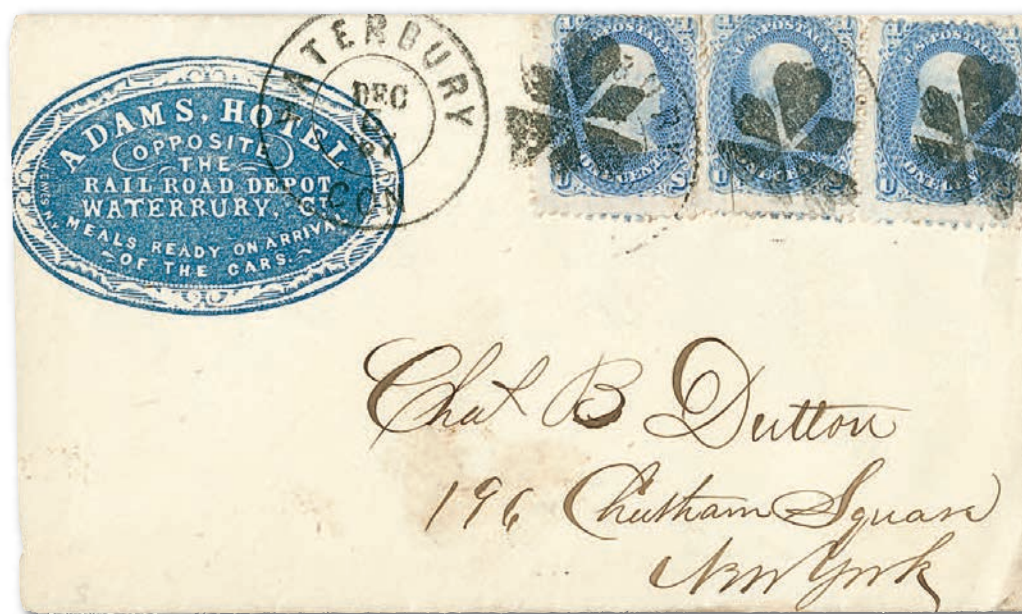 ADAMS, HOTEL
OPPOSITE
THE
RAIL ROAD DEPOT
WATERRURY, CT.
MEALS READY ON ARRIVA
OF THE CARS
WATERBURY
DEC
CON
U.S. POSTAGE
ONE CENT
U S
U.S. POSTAGE
ONE CENT
U S
U.S. POSTAGE
ONE CENT
U S
Chas B Dutton
196 Chatham Square
New York